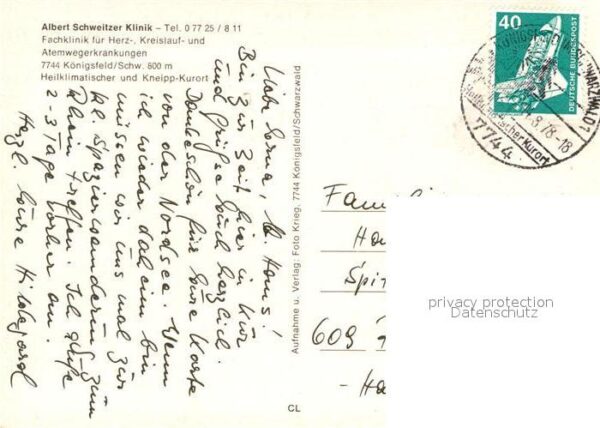 Albert Schweitzer Klinik – Tel. 0 77 25 / 8 11
Fachklinik für Herz-, Kreislauf- und
Atemwegerkrankungen
7744 Königsfeld/Schw. 800 m
Heilklimatischer und Kneipp-Kurort
Liebe Erna, lb. Hans!
Bin zur Zeit hier in Kur
und grüße Euch herzlich.
Dankeschön für Eure Karte
von der Nordsee. Wenn
ich wieder daheim bin
müssen wir uns mal zur
kl. Spazierwanderung zum
Rhein treffen. Ich rufe
2-3 Tage vorher an.
Herzl. Eure Hildegard
Aufnahme u. Verlag: Foto Krieg, 7744 Königsfeld/Schwarzwald
CL
40
DEUTSCHE BUNDESPOST
KÖNIGSFELD
SCHWARZWALD 1
8.78-18
Heilklimatischer Kurort
7744
Fam
Ha
Spit
609
- Ha
privacy protection
Datenschutz